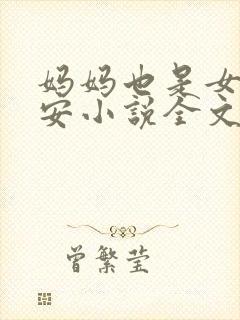 妈妈也是女
安小说全文
曾繁莹